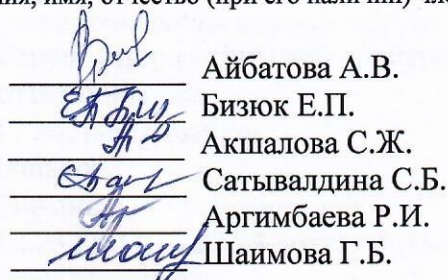 имя, отчество (при его наличии)
Айбатова А.В.
Бизюк Е.П.
Акшалова С.Ж.
Сатывалдина С.Б.
Аргимбаева Р.И.
Шаимова Г.Б.